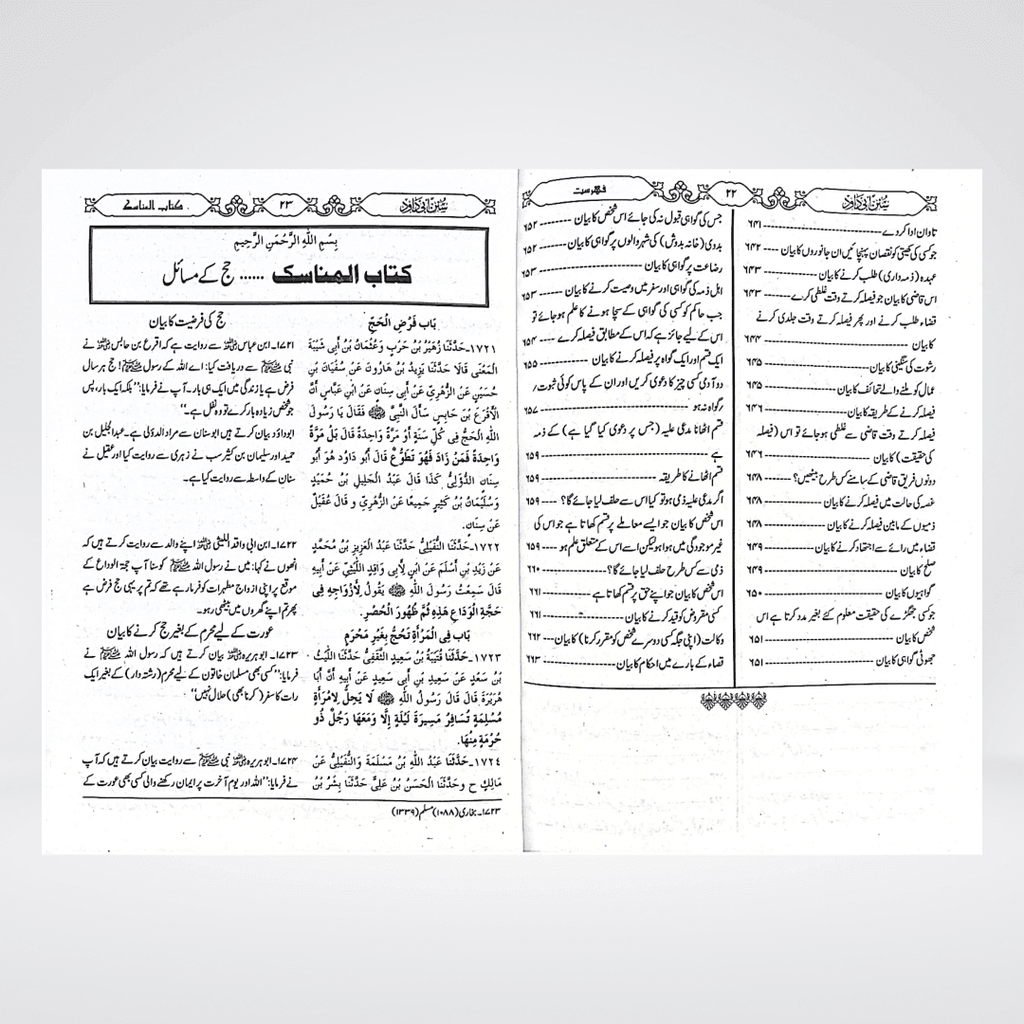 سنن ابی داؤد
۲۲
فہرست
تاوان ادا کر دے ---------- ۶۴۱
جو کسی کی کھیتی کو نقصان پہنچائیں ان جانوروں کا بیان ---- ۶۴۲
عہدہ (ذمہ داری) طلب کرنے کا بیان ---------- ۶۴۳
اس قاضی کا بیان جو فیصلہ کرتے وقت غلطی کرے ---- ۶۴۳
قضاء طلب کرنے اور پھر فیصلہ کرتے وقت جلدی کرنے
کا بیان ---------- ۶۴۴
رشوت کی سنگینی کا بیان ---------- ۶۴۵
عمال کو ملنے والے تحائف کا بیان ---------- ۶۴۵
فیصلہ کرنے کے طریقہ کا بیان ---------- ۶۴۶
فیصلہ کرتے وقت قاضی سے غلطی ہو جائے تو اس (فیصلہ
کی حقیقت) کا بیان ---------- ۶۴۶
دونوں فریق قاضی کے سامنے کس طرح بیٹھیں؟ ---- ۶۴۸
غصہ کی حالت میں فیصلہ کرنے کا بیان ---------- ۶۴۸
ذمیوں کے مابین فیصلہ کرنے کا بیان ---------- ۶۴۸
قضاء میں رائے سے اجتہاد کرنے کا بیان ---------- ۶۴۹
صلح کا بیان ---------- ۶۴۹
گواہیوں کا بیان ---------- ۶۵۰
جو کسی جھگڑے کی حقیقت معلوم کئے بغیر مدد کرتا ہے اس
شخص کا بیان ---------- ۶۵۱
جھوٹی گواہی کا بیان ---------- ۶۵۱
جس کی گواہی قبول نہ کی جائے اس شخص کا بیان ---------- ۶۵۲
بدوی (خانہ بدوش) کی شہر والوں پر گواہی کا بیان ---- ۶۵۲
رضاعت پر گواہی کا بیان ---------- ۶۵۳
اہل ذمہ کی گواہی اور سفر میں وصیت کرنے کا بیان ---- ۶۵۳
جب حاکم کو کسی کی گواہی کے سچا ہونے کا علم ہو جائے تو
اس کے لیے جائز ہے کہ اس کے مطابق فیصلہ کرے ---- ۶۵۴
ایک قسم اور ایک گواہ پر فیصلہ کرنے کا بیان ---------- ۶۵۵
دو آدمی کسی چیز کا دعویٰ کریں اور ان کے پاس کوئی ثبوت/
گواہ نہ ہو ---------- ۶۵۷
قسم اٹھانا مدعی علیہ (جس پر دعویٰ کیا گیا ہے) کے ذمہ
ہے ---------- ۶۵۹
قسم اٹھانے کا طریقہ ---------- ۶۵۹
اگر مدعی علیہ ذمی ہو تو کیا اس سے حلف لیا جائے گا؟ ---- ۶۵۹
اس شخص کا بیان جو ایسے معاملے پر قسم کھاتا ہے جو اس کی
غیر موجودگی میں ہوا ہو لیکن اسے اس کے متعلق علم ہو ---- ۶۵۹
ذمی سے کس طرح حلف لیا جائے گا؟ ---------- ۶۶۰
اس شخص کا بیان جو اپنے حق پر قسم کھاتا ہے ---------- ۶۶۱
کسی مقروض کو قید کرنے کا بیان ---------- ۶۶۱
وکالت (اپنی جگہ کسی دوسرے شخص کو مقرر کرنا) کا بیان --- ۶۶۲
قضاء کے بارے میں احکام کا بیان ---------- ۶۶۳
سنن ابی داؤد
۲۳
کتاب المناسک
بِسْمِ اللّٰهِ الرَّحْمٰنِ الرَّحِيْمِ
کتاب المناسک ...... حج کے مسائل
بَاب فَرْضِ الْحَجِّ
١٧٢١۔حَدَّثَنَا زُهَيْرُ بْنُ حَرْبٍ وَعُثْمَانُ بْنُ أَبِي شَيْبَةَ
الْمَعْنَى قَالَا حَدَّثَنَا يَزِيدُ بْنُ هَارُونَ عَنْ سُفْيَانَ بْنِ
حُسَيْنٍ عَنِ الزُّهْرِيِّ عَنْ أَبِي سِنَانٍ عَنِ ابْنِ عَبَّاسٍ أَنَّ
الْأَقْرَعَ بْنَ حَابِسٍ سَأَلَ النَّبِيَّ ﷺ فَقَالَ يَا رَسُولَ
اللَّهِ الْحَجُّ فِي كُلِّ سَنَةٍ أَوْ مَرَّةً وَاحِدَةً قَالَ بَلْ مَرَّةً
وَاحِدَةً فَمَنْ زَادَ فَهُوَ تَطَوُّعٌ قَالَ أَبُو دَاوُد هُوَ أَبُو
سِنَانٍ الدُّؤَلِيُّ كَذَا قَالَ عَبْدُ الْجَلِيلِ بْنُ حُمَيْدٍ
وَسُلَيْمَانُ بْنُ كَثِيرٍ جَمِيعًا عَنِ الزُّهْرِيِّ و قَالَ عُقَيْلٌ
عَنْ سِنَانٍ.
١٧٢٢۔حَدَّثَنَا النُّفَيْلِيُّ حَدَّثَنَا عَبْدُ الْعَزِيزِ بْنُ مُحَمَّدٍ
عَنْ زَيْدِ بْنِ أَسْلَمَ عَنْ ابْنٍ لِأَبِي وَاقِدٍ اللَّيْثِيِّ عَنْ أَبِيهِ
قَالَ سَمِعْتُ رَسُولَ اللَّهِ ﷺ يَقُولُ لِأَزْوَاجِهِ فِي
حَجَّةِ الْوَدَاعِ هَذِهِ ثُمَّ ظُهُورَ الْحُصْرِ.
بَاب فِي الْمَرْأَةِ تَحُجُّ بِغَيْرِ مَحْرَمٍ
١٧٢٣۔حَدَّثَنَا قُتَيْبَةُ بْنُ سَعِيدٍ الثَّقَفِيُّ حَدَّثَنَا اللَّيْثُ
بْنُ سَعْدٍ عَنْ سَعِيدِ بْنِ أَبِي سَعِيدٍ عَنْ أَبِيهِ أَنَّ أَبَا
هُرَيْرَةَ قَالَ قَالَ رَسُولُ اللَّهِ ﷺ لَا يَحِلُّ لِامْرَأَةٍ
مُسْلِمَةٍ تُسَافِرُ مَسِيرَةَ لَيْلَةٍ إِلَّا وَمَعَهَا رَجُلٌ ذُو
حُرْمَةٍ مِنْهَا.
١٧٢٤۔حَدَّثَنَا عَبْدُ اللَّهِ بْنُ مَسْلَمَةَ وَالنُّفَيْلِيُّ عَنْ
مَالِكٍ ح وحَدَّثَنَا الْحَسَنُ بْنُ عَلِيٍّ حَدَّثَنَا بِشْرُ بْنُ
حج کی فرضیت کا بیان
۱۷۲۱۔ ابن عباس رضی اللہ عنہما سے روایت ہے کہ اقرع بن حابس رضی اللہ عنہ نے
نبی ﷺ سے دریافت کیا: اے اللہ کے رسول! حج ہر سال
فرض ہے یا زندگی میں ایک ہی بار۔ آپ نے فرمایا: ”بلکہ ایک بار، پس
جو شخص زیادہ بار کرے تو وہ نفل ہے۔“
ابوداؤد بیان کرتے ہیں ابو سنان سے مراد الدؤلی ہے۔ عبدالجلیل بن
حمید اور سلیمان بن کثیر سب نے زہری سے روایت کیا اور عقیل نے
سنان کے واسطہ سے روایت کیا ہے۔
۱۷۲۲۔ ابن ابی واقد اللیثی رضی اللہ عنہ اپنے والد سے روایت کرتے ہیں کہ
انھوں نے کہا: میں نے رسول اللہ ﷺ کو سنا آپ حجۃ الوداع کے
موقع پر اپنی ازواج مطہرات کو فرما رہے تھے کہ تم پر یہی حج فرض ہے
پھر تم اپنے گھروں میں بیٹھی رہو۔
عورت کے لیے محرم کے بغیر حج کرنے کا بیان
۱۷۲۳۔ ابو ہریرہ رضی اللہ عنہ بیان کرتے ہیں کہ رسول اللہ ﷺ نے
فرمایا: ”کسی بھی مسلمان خاتون کے لیے محرم (رشتہ دار) کے بغیر ایک
رات کا سفر (کرنا بھی) حلال نہیں“
۱۷۲۴۔ ابو ہریرہ رضی اللہ عنہ نبی ﷺ سے روایت بیان کرتے ہیں کہ آپ
نے فرمایا: ”اللہ اور یوم آخرت پر ایمان رکھنے والی کسی بھی عورت کے
۱۷۲۳۔ بخاری (۱۰۸۸) مسلم (۱۳۳۹)